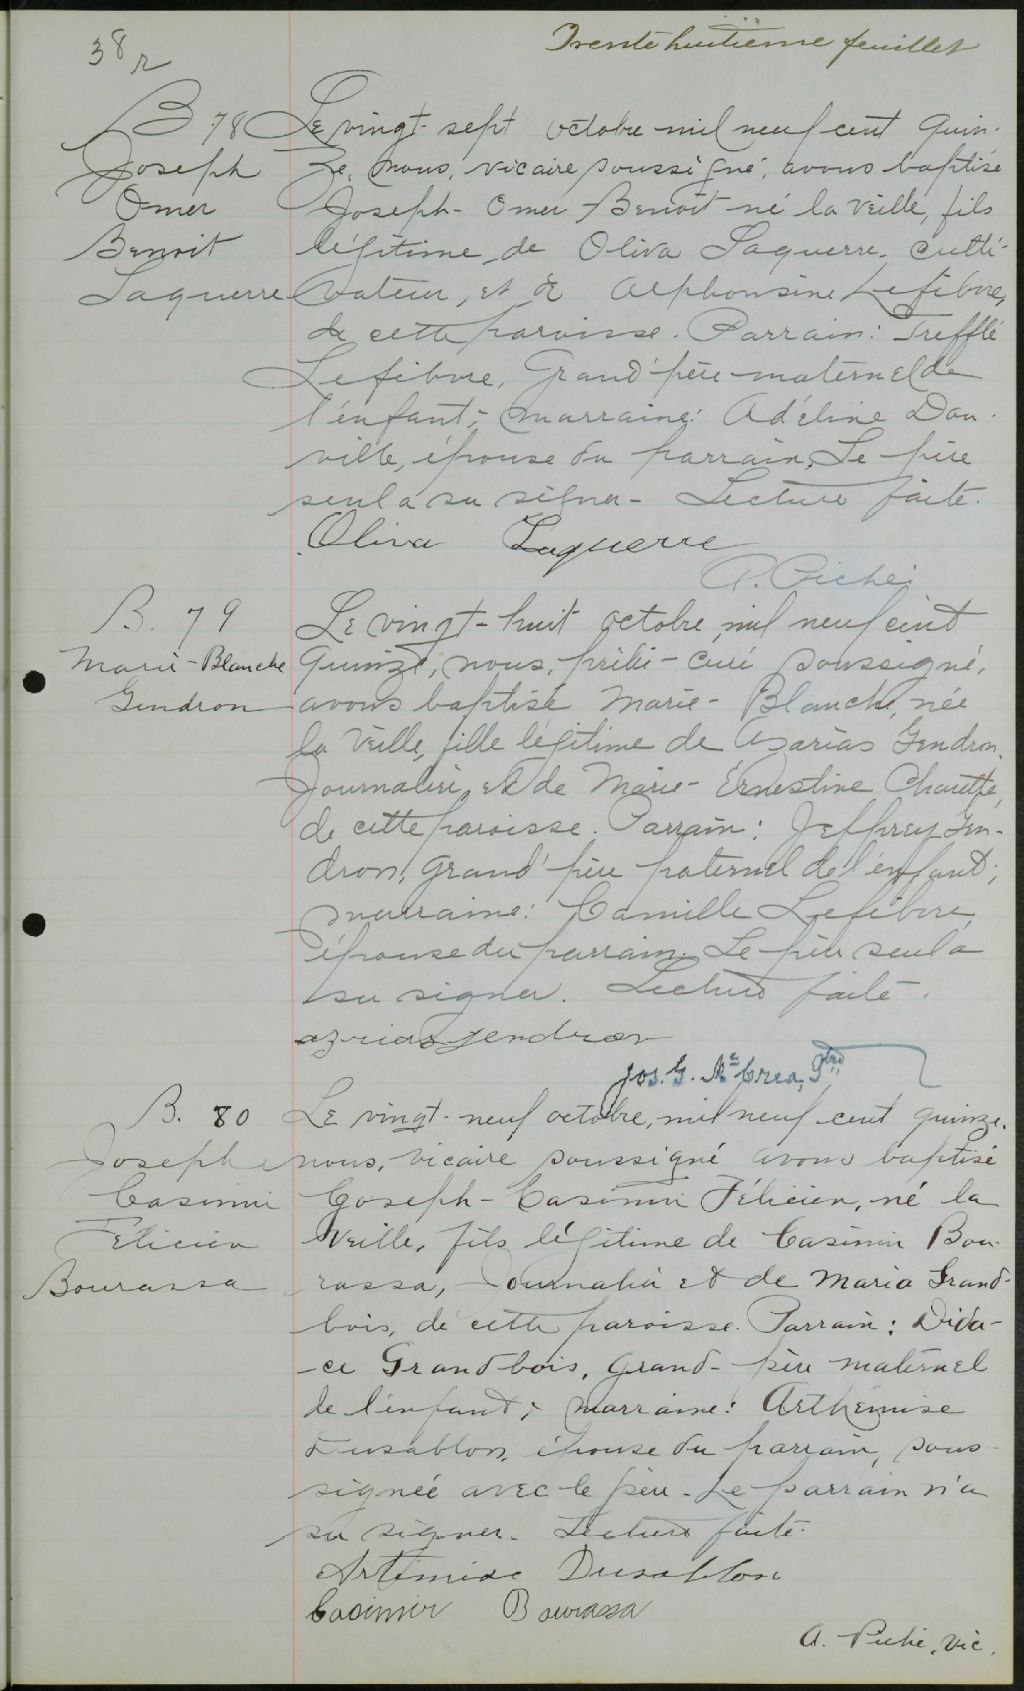 38r
Trente huitième feuillet
B 78
Joseph
Omer
Benoit
Laguerre
Le vingt-sept octobre mil neuf cent quin-
ze, nous, vicaire soussigné, avons baptisé
Joseph-Omer-Benoit né la veille, fils
légitime de Oliva Laguerre, culti-
vateur, et de Alphonsine Lefebvre,
de cette paroisse. Parrain: Trefflé
Lefebvre, Grand'père maternel de
l'enfant; marraine: Adéline Dau-
ville, épouse du parrain. Le père
seul a su signer - Lecture faite.
Oliva Laguerre
A. Piché
B. 79
Marie-Blanche
Gendron
Le vingt-huit octobre, mil neuf cent
quinze, nous, prêtre-curé soussigné,
avons baptisé Marie-Blanche, née
la veille, fille légitime de Azarias Gendron,
Journalier, et de Marie-Ernestine Chouette,
de cette paroisse. Parrain: Jeffrey Gen-
dron, grand'père paternel de l'enfant;
marraine: Camille Lefebvre,
épouse du parrain. Le père seul a
su signer. Lecture faite.
azrias gendron
Jos. G. McCrea, Ptre
B. 80
Joseph
Casimir
Félicien
Bourassa
Le vingt-neuf octobre, mil neuf cent quinze,
nous, vicaire soussigné avons baptisé
Joseph-Casimir Félicien, né la
veille, fils légitime de Casimir Bou-
rassa, Journalier et de Maria Grand-
bois, de cette paroisse. Parrain: Dida-
ce Grandbois, grand-père maternel
de l'enfant; marraine: Arthémise
Dusablon, épouse du parrain, sous-
signée avec le père. Le parrain n'a
su signer. Lecture faite.
Artémise Dusablon
Casimir Bourassa
A. Piché, vic.